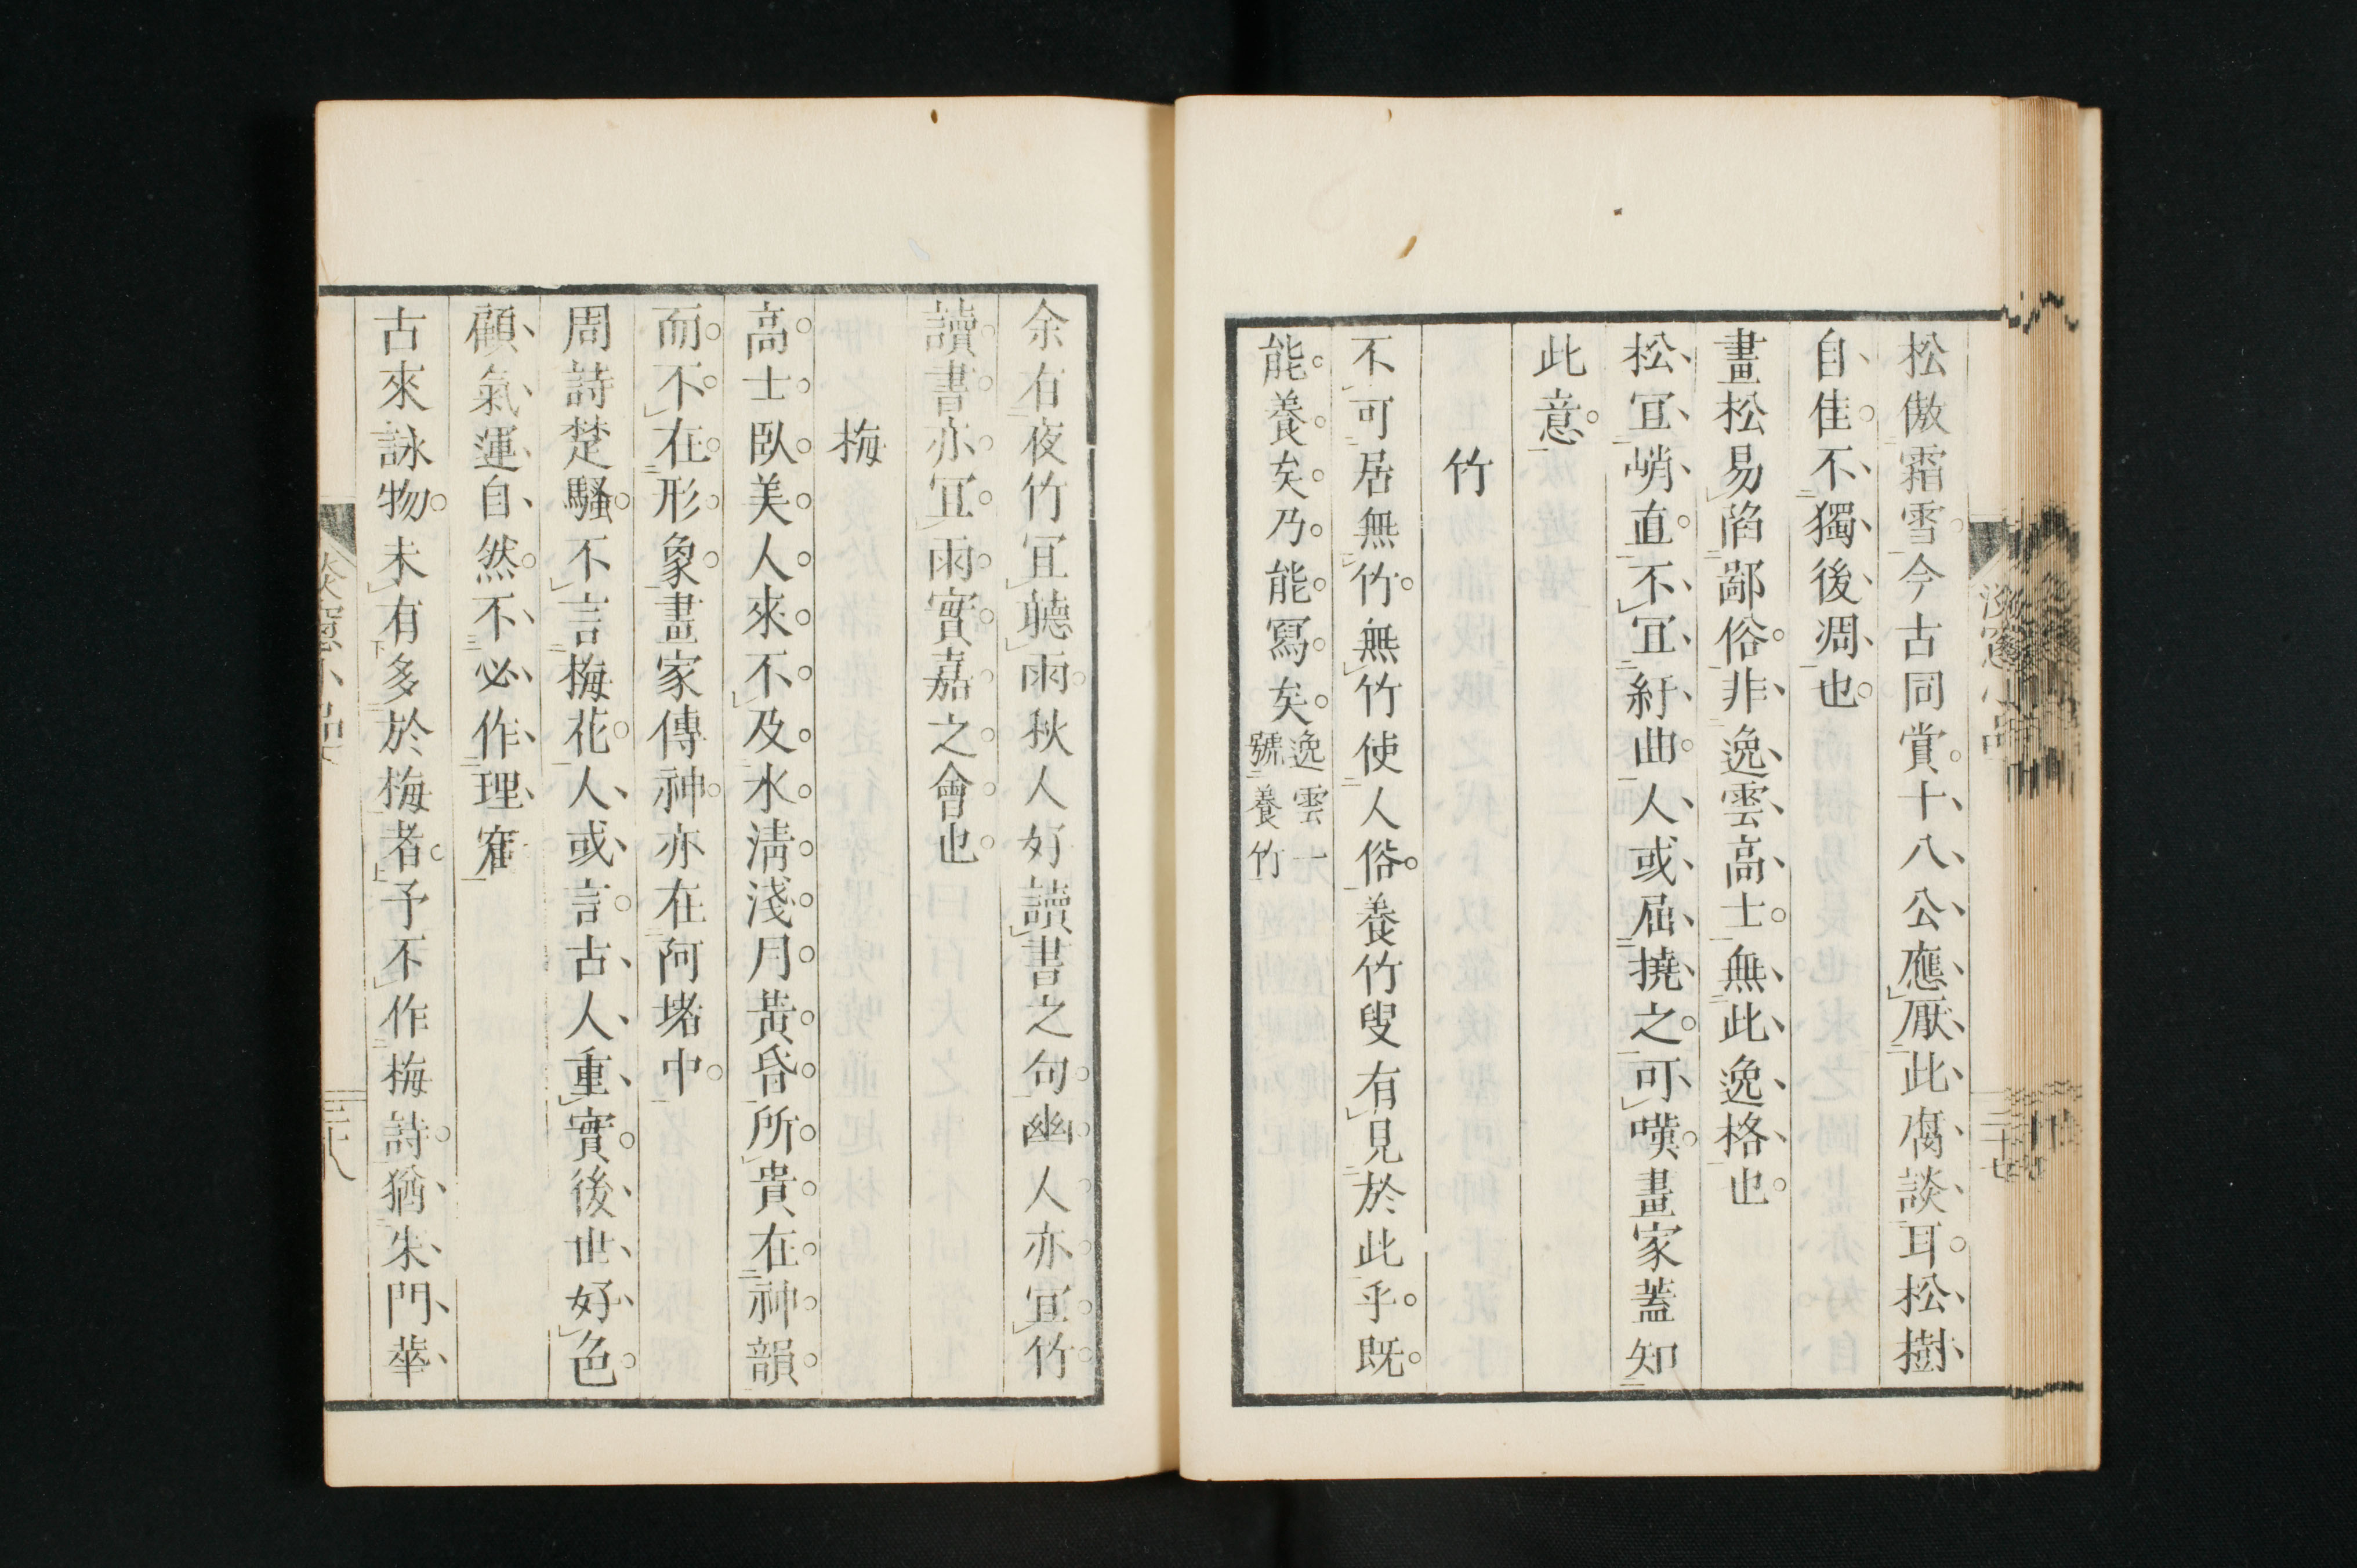 松傲霜雪今古同賞十八公應厭此腐談耳松樹
自佳不獨後凋也
畫松易陷鄙俗非逸雲高士無此逸格也
松宜峭直不宜紆曲人或屈撓之可嘆畫家蓋知
此意
竹
不可居無竹無竹使人俗養竹叟有見於此乎既
能養矣乃能寫矣逸雲一
號養竹
余有夜竹宜聽雨秋人好讀書之句幽人亦宜竹
讀書亦宜雨實嘉之會也
梅
高士臥美人來不及水淸淺月黃昏所貴在神韻
而不在形象畫家傳神亦在阿堵中
周詩楚騷不言梅花人或言古人重實後世好色
顧氣運自然不必作理窟
古來詠物未有多於梅者予不作梅詩猶朱門華
淡窓小品
三十八